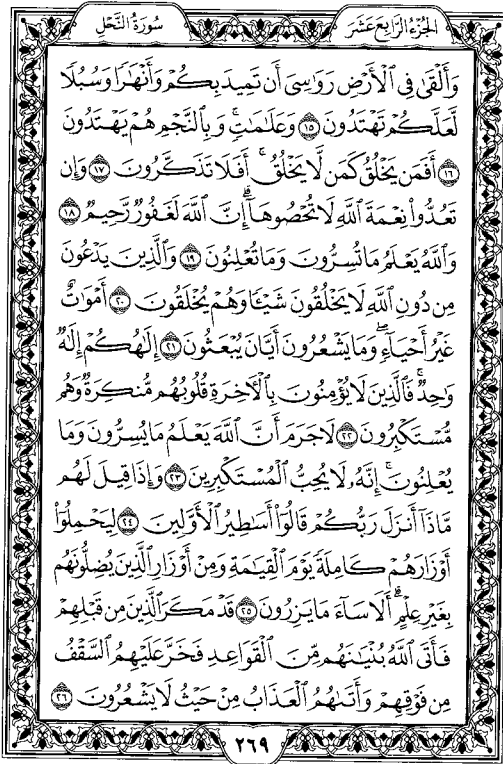 الجزء الرابع عشر
سورة النحل
وَأَلْقَىٰ فِي ٱلْأَرْضِ رَوَٰسِىَ أَن تَمِيدَ بِكُمْ وَأَنْهَٰرًا وَسُبُلًا
لَّعَلَّكُمْ تَهْتَدُونَ ١٥ وَعَلَٰمَٰتٍۚ وَبِٱلنَّجْمِ هُمْ يَهْتَدُونَ
١٦ أَفَمَن يَخْلُقُ كَمَن لَّا يَخْلُقُۗ أَفَلَا تَذَكَّرُونَ ١٧ وَإِن
تَعُدُّوا۟ نِعْمَةَ ٱللَّهِ لَا تُحْصُوهَآۗ إِنَّ ٱللَّهَ لَغَفُورٌ رَّحِيمٌ ١٨
وَٱللَّهُ يَعْلَمُ مَا تُسِرُّونَ وَمَا تُعْلِنُونَ ١٩ وَٱلَّذِينَ يَدْعُونَ
مِن دُونِ ٱللَّهِ لَا يَخْلُقُونَ شَيْـًٔا وَهُمْ يُخْلَقُونَ ٢٠ أَمْوَٰتٌ
غَيْرُ أَحْيَآءٍۖ وَمَا يَشْعُرُونَ أَيَّانَ يُبْعَثُونَ ٢١ إِلَٰهُكُمْ إِلَٰهٌ
وَٰحِدٌۚ فَٱلَّذِينَ لَا يُؤْمِنُونَ بِٱلْأَخِرَةِ قُلُوبُهُم مُّنكِرَةٌ وَهُم
مُّسْتَكْبِرُونَ ٢٢ لَا جَرَمَ أَنَّ ٱللَّهَ يَعْلَمُ مَا يُسِرُّونَ وَمَا
يُعْلِنُونَۚ إِنَّهُۥ لَا يُحِبُّ ٱلْمُسْتَكْبِرِينَ ٢٣ وَإِذَا قِيلَ لَهُم
مَّاذَآ أَنزَلَ رَبُّكُمْ قَالُوٓا۟ أَسَٰطِيرُ ٱلْأَوَّلِينَ ٢٤ لِيَحْمِلُوٓا۟
أَوْزَارَهُمْ كَامِلَةً يَوْمَ ٱلْقِيَٰمَةِ وَمِنْ أَوْزَارِ ٱلَّذِينَ يُضِلُّونَهُم
بِغَيْرِ عِلْمٍۗ أَلَا سَآءَ مَا يَزِرُونَ ٢٥ قَدْ مَكَرَ ٱلَّذِينَ مِن قَبْلِهِمْ
فَأَتَى ٱللَّهُ بُنْيَٰنَهُم مِّنَ ٱلْقَوَاعِدِ فَخَرَّ عَلَيْهِمُ ٱلسَّقْفُ
مِن فَوْقِهِمْ وَأَتَىٰهُمُ ٱلْعَذَابُ مِنْ حَيْثُ لَا يَشْعُرُونَ ٢٦
٢٦٩